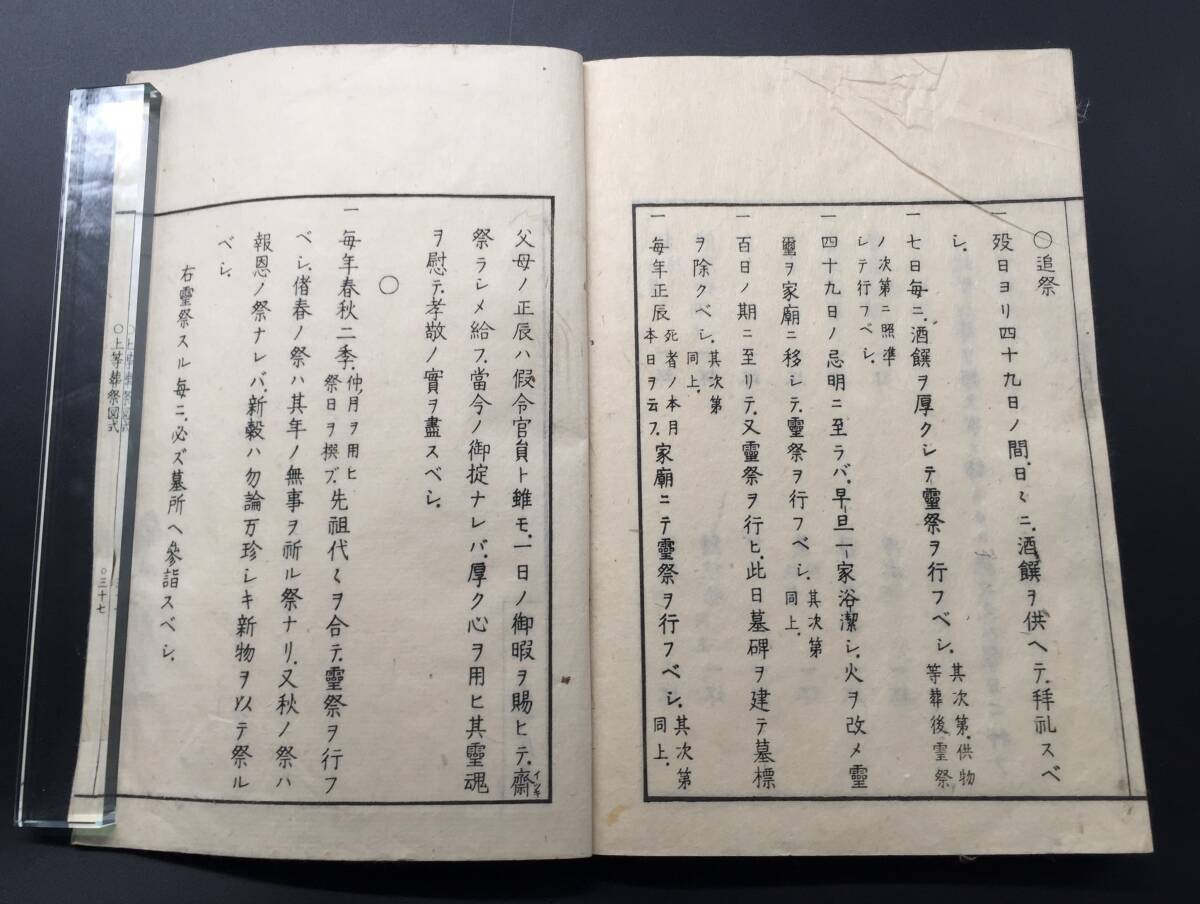 〇追祭
一 殁日ヨリ四十九日ノ間、日〻ニ、酒饌ヲ供ヘテ、拜礼スベ
シ、其次第、供物等葬後霊祭
一 七日毎ニ、酒饌ヲ厚クシテ靈祭ヲ行フベシ、
ノ次第ニ照準
シテ行フベシ、
一 四十九日ノ忌明ニ至ラバ、早旦一家浴潔シ、火ヲ改メ靈
璽ヲ家廟ニ移シテ、靈祭ヲ行フベシ、其次第同上、
一 百日ノ期ニ至リテ、又靈祭ヲ行ヒ、此日墓碑ヲ建テ墓標
ヲ除クベシ、其次第同上、
一 毎年正辰 死者ノ本月本日ヲ云フ、家廟ニテ靈祭ヲ行フベシ、其次第同上、
父母ノ正辰ハ假令官員ト雖モ、一日ノ御暇ヲ賜ヒテ、齋イツキ
祭ラシメ給フ、當今ノ御掟ナレバ、厚ク心ヲ用ヒ其靈魂
ヲ慰テ、孝敬ノ實ヲ盡スベシ、
〇
一 毎年春秋二季、仲月ヲ用ヒ祭日ヲ撰ブ、先祖代〻ヲ合テ、靈祭ヲ行フ
ベシ、偖春ノ祭ハ其年ノ無事ヲ祈ル祭ナリ、又秋ノ祭ハ
報恩ノ祭ナレバ、新穀ハ勿論万珍シキ新物ヲ以テ祭ル
ベシ、
右靈祭スル毎ニ、必ズ墓所ヘ參詣スベシ、
〇上等葬祭図式
〇三十七